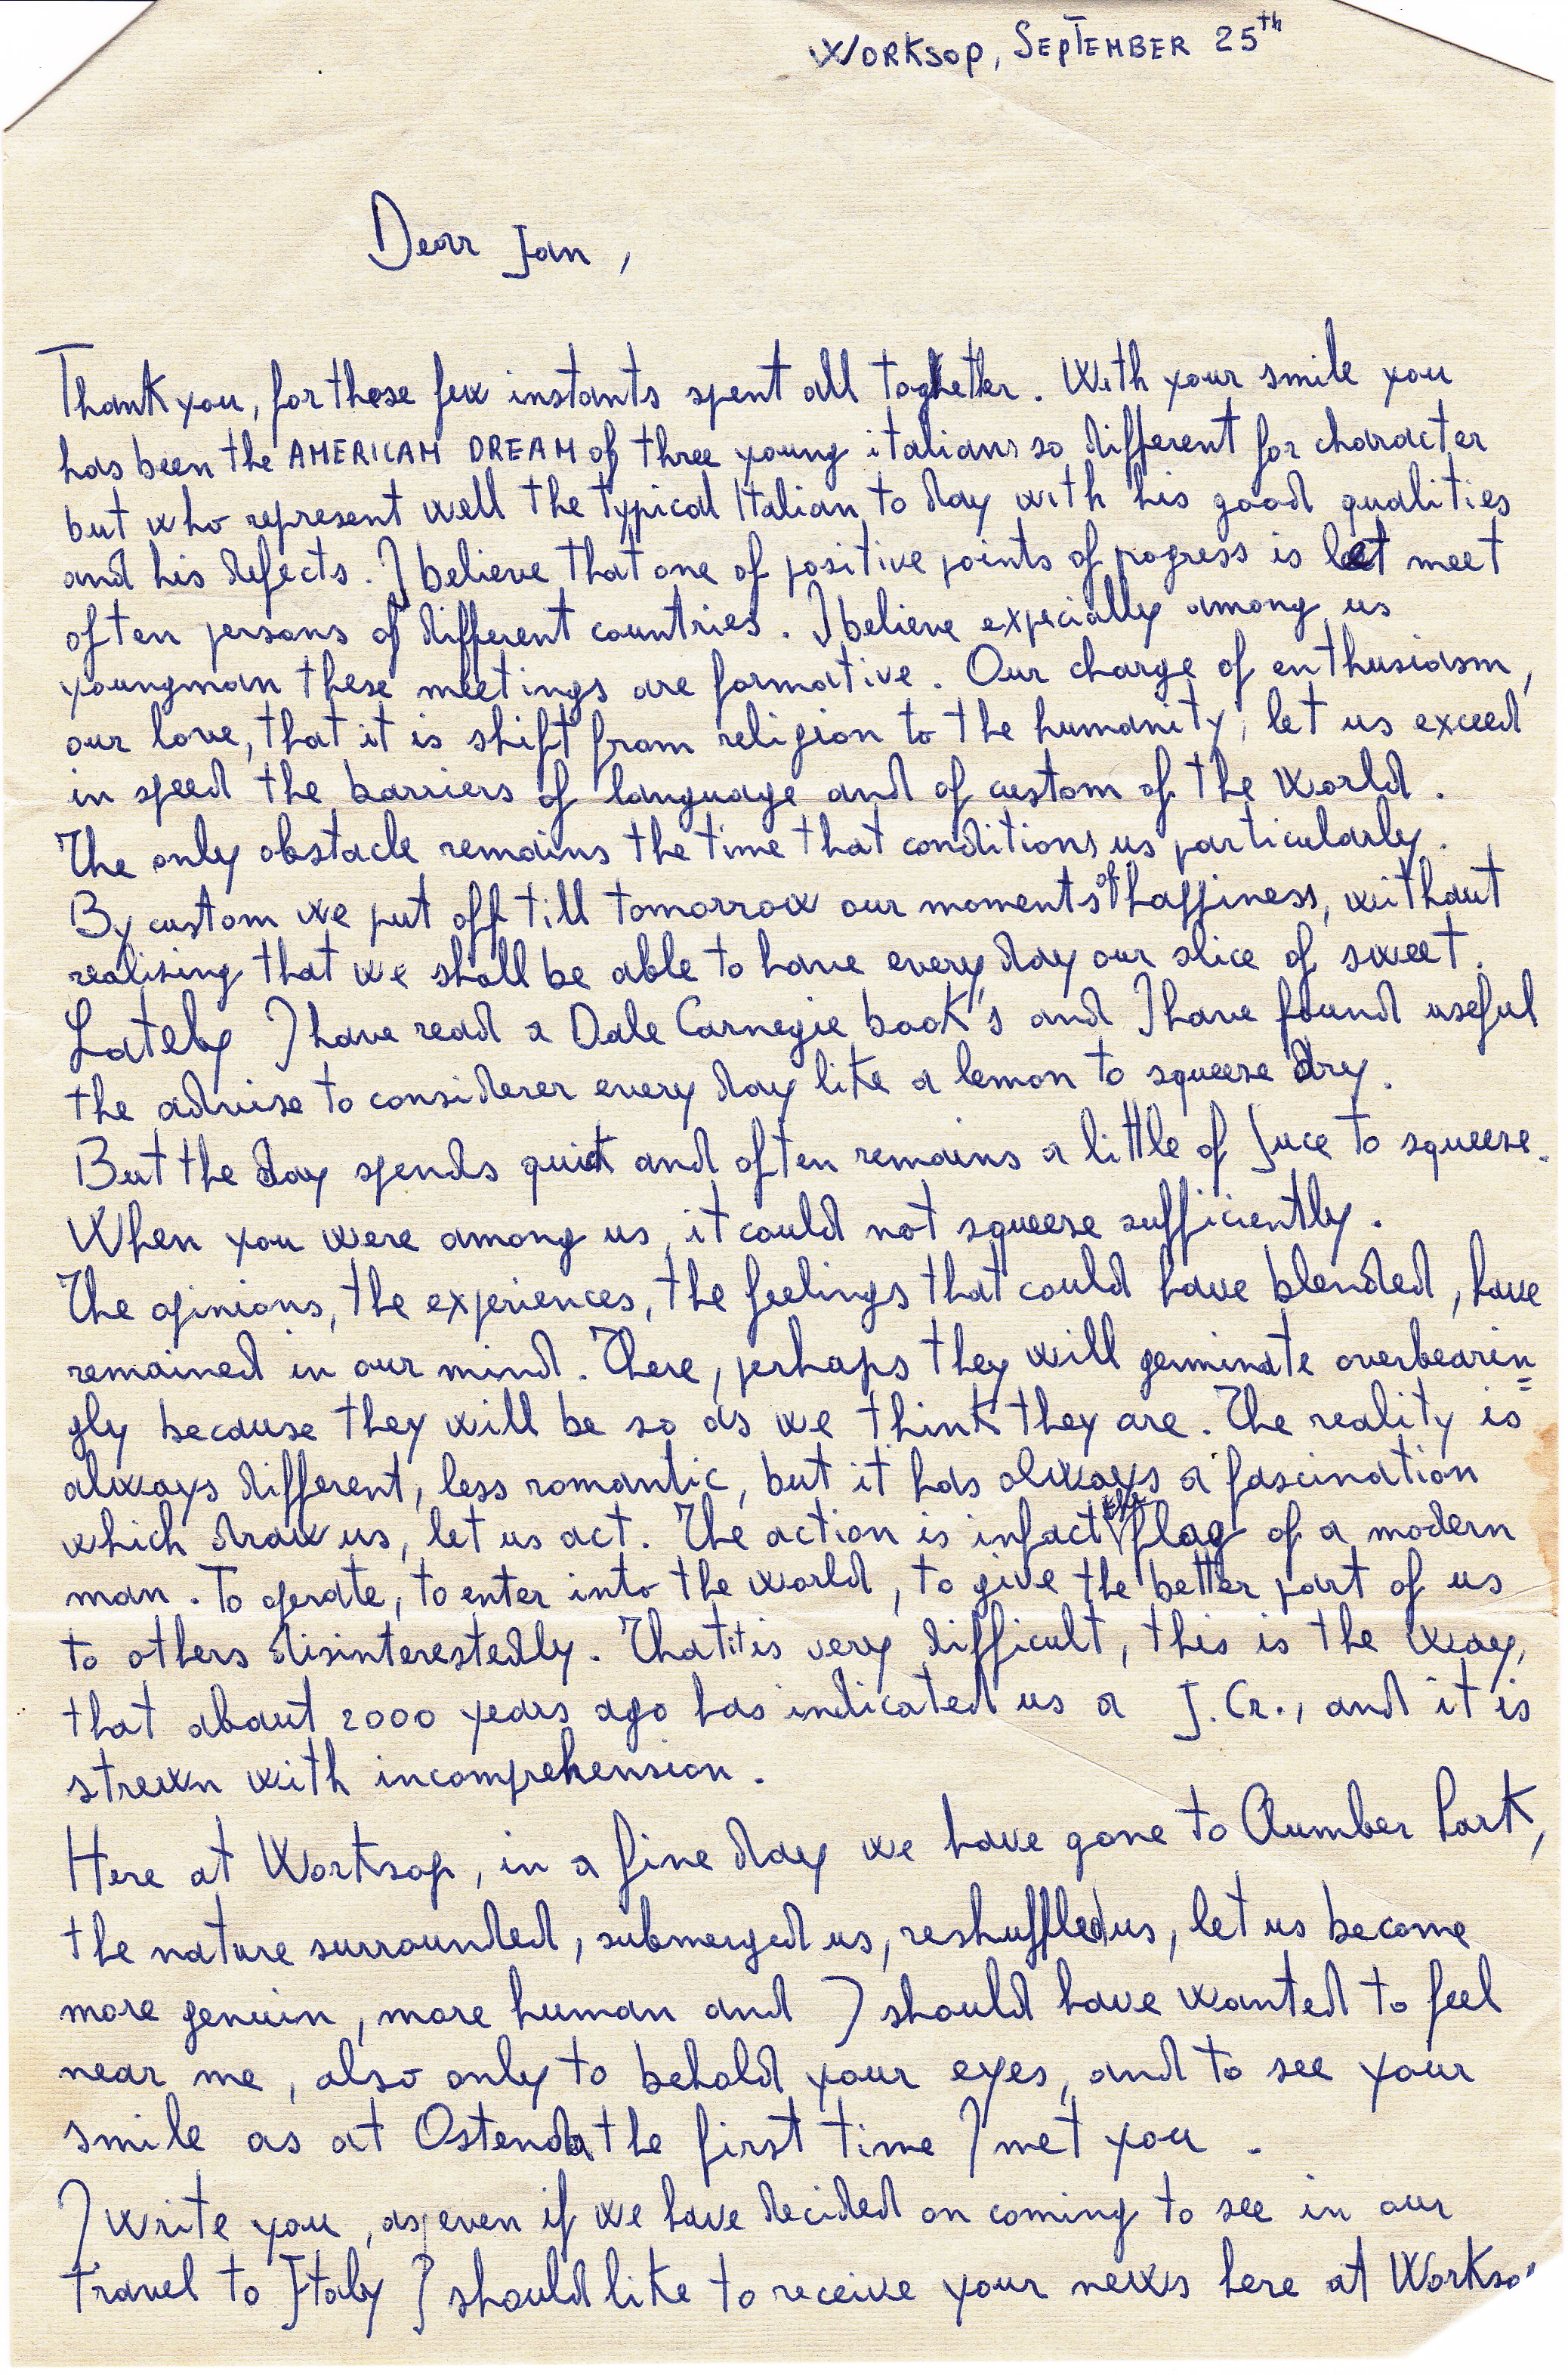 WORKSOP, SEPTEMBER 25th
Dear Jan,
Thank you, for those few instants spent all toghether. With your smile you
has been the AMERICAM DREAM of three young italians so different for character
but who represent well the typical Italian to day with his good qualities
and his defects. I believe that one of positive points of progress is let meet
often persons of different countries. I believe expecially among us
youngman these meetings are formative. Our charge of enthusiasm,
our love, that it is shift from religion to the humanity, let us exceed
in speed the barriers of language and of custom of the world.
The only obstacle remains the time that conditions us particularly.
By custom we put off till tomorrow our moments of happiness, without
realising that we shall be able to have every day our slice of sweet.
Lately I have read a Dale Carnegie book's and I have found useful
the advise to considerer every day like a lemon to squeeze dry.
But the day spends quick and often remains a little of juce to squeeze.
When you were among us, it could not squeeze sufficiently.
The opinions, the experiences, the feelings that could have blended, have
remained in our mind. There, perhaps they will germinate overbearin=
gly because they will be so as we think they are. The reality is
always different, less romantic, but it has always a fascination
which draw us, let us act. The action is infact the flag of a modern
man. To operate, to enter into the world, to give the better part of us
to others disinterestedly. That it is very difficult, this is the way,
that about 2000 years ago has indicated us a J. Cr., and it is
strewn with incomprehension.
Here at Worksop, in a fine day we have gone to Clumber Park,
the nature surrounded, submerged us, reshuffled us, let us become
more genuin, more human and I should have wanted to feel
near me, also only to behold your eyes, and to see your
smile as at Ostenda the first time I met you.
I write you, as even if we have decided on coming to see in our
travel to Italy I should like to receive your news here at Workso